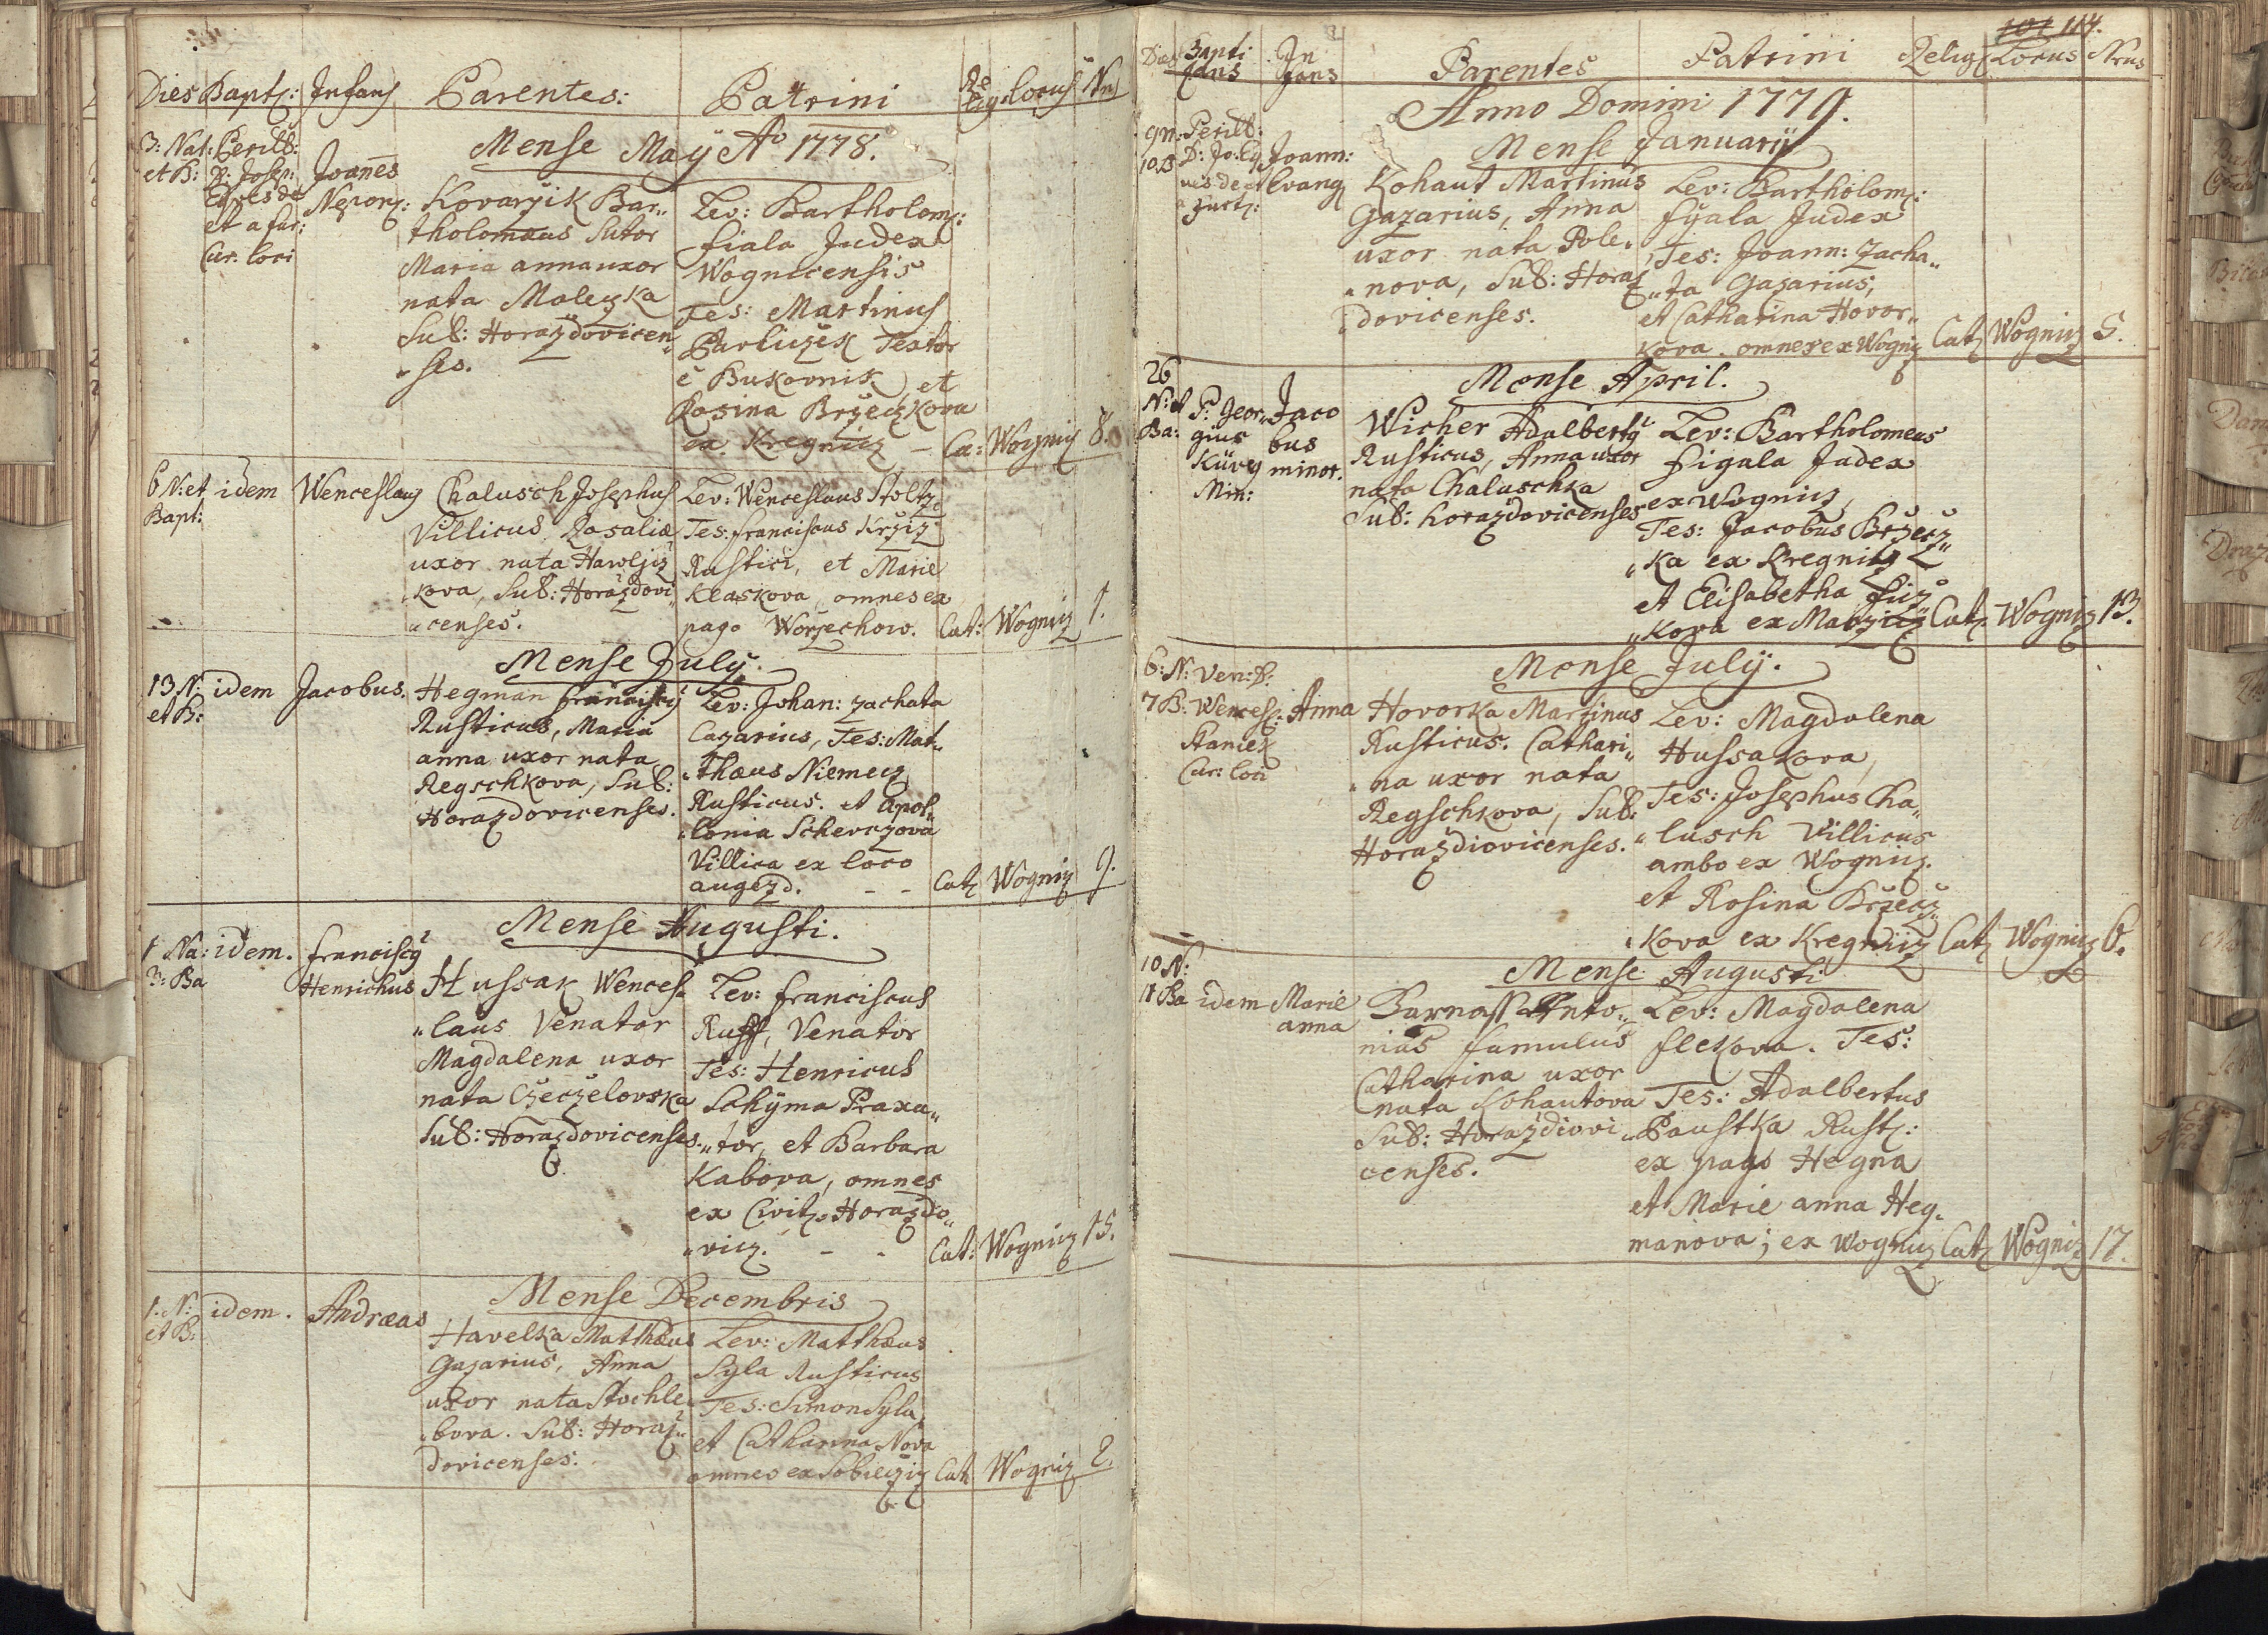 Dies Bapt: Infans Parentes: Patrini Relig Locus Nrus
Mense Maÿ Aõ 1778.
3: Nat: et B:
Perill: D: Josep: Eques de et a fur: Cur: loci
Joañes Nepom:
Kovarzik Bar„
tholomæus Sutor
Maria anna uxor
nata Maleczka
Sub: Horazdovicen„
„ses.
Lev: Bartholom:
fiala Judex
Wognicensis
Tes: Martinus
Pavliczek Textor
è Bukovnik, et
Rosina Brzeczkova
ex Kregnicz – Ca: Wognicz 8.
6 N: et Bapt:
idem
Wenceslaus
Chalusch Josephus
Villicus, Rosaliæ
uxor nata Hawljcz
kova, Sub: Horazdovi„
„censes.
Lev: Wenceslaus Stoltz
Tes: Franciscus Krziz
Rustici, et Marie
Klaskova, omnes ex
pago Worzechow. Cat: Wognicz 1.
Mense Julÿ.
13 N: et B:
idem
Jacobus.
Hegman Franciscus
Rusticus, Maria
anna uxor nata
Regschkova, Sub:
Horazdovicenses.
Lev: Johan: Zachata
Cazarius, Tes: Mat„
„thæus Niemecz
Rusticus. et Apol„
„lonia Schevczova
Villica ex loco
augezd. – – Cat Wognicz 9.
Mense Augusti.
1 Na: 3: Ba
idem.
Franciscus
Henrichus
Hussak Wences„
„laus Venator
Magdalena uxor
nata Czeczelovska
Sub: Horazdovicenses.
Lev: Franciscus
Ruff, Venator
Tes: Henricus
Schÿma Praxa„
„tor, et Barbara
Kabova, omnes
ex Civit: Horazdo„
„vicz. – – Cat: Wognicz 15.
Mense Decembris
1. N: et B:
idem.
Andræas
Havelka Matthæus
Gazarius, Anna
uxor nata Stochle„
„bova. Sub: Horaz„
dovicenses.
Lev: Matthæus
Syla Rusticus
Tes: Simon Syla,
et Catharina Nova
omnes ex Sobieczicz Cat Wognicz 2.
101 114.
Dies Baptizans Infans Parentes Patrini Relig Locus Nrus
Anno Domini 1779.
Mense Januarÿ
9 N: 10. B
Perill: D: Jo: Eq
Joann: Evang
Kohaut Martinus
Gazarius, Anna
uxor nata Pole„
„nova, Sub: Horaz
dovicenses.
Lev: Bartholom:
fÿala Judex
Tes: Joann: Zacha„
„ta Gazarius,
et Catharina Hovor„
kova. omnes ex Wognicz Cat Wognicz 5.
Mense April.
26 N: et Ba:
P: Geor„
gius
Min:
Jaco
bus
minor.
Wicher Adalbertus
Rusticus, Anna uxor
nata Chaluschka
Sub: horazdovicenses
Lev: Bartholomeus
Figala Judex
ex Wognicz,
Tes: Jacobus Brzecz„
„ka ex Kregnicz
et Elisabetha
„kova ex Cat Wognicz 13.
Mense Julÿ.
6: N: 7 B:
Ven: D:
Wencesl:
Staniek
Cur: loci
Anna
Hovorka Martinus
Rusticus. Cathari„
„na uxor nata
Regschkova, Sub:
Horazdiovicenses.
Lev: Magdalena
Hussakova,
Tes: Josephus Cha„
„lusch Villicus
ambo ex Wognicz.
et Rosina Brzecz„
„kova ex Kregnicz Cat Wognicz 6.
Mense Augusti
10 N: 11 Ba
idem
Marie
anna
Barnass Anto„
nius famulus
Catharina uxor
nata Kohautova
Sub: Horazdiovi„
censes.
Lev: Magdalena
flekova. Tes:
Tes: Adalbertus
Paustka Rust:
ex pago Hegna
et Marie anna Heg„
manova; ex Wognicz Cat Wognicz 17.